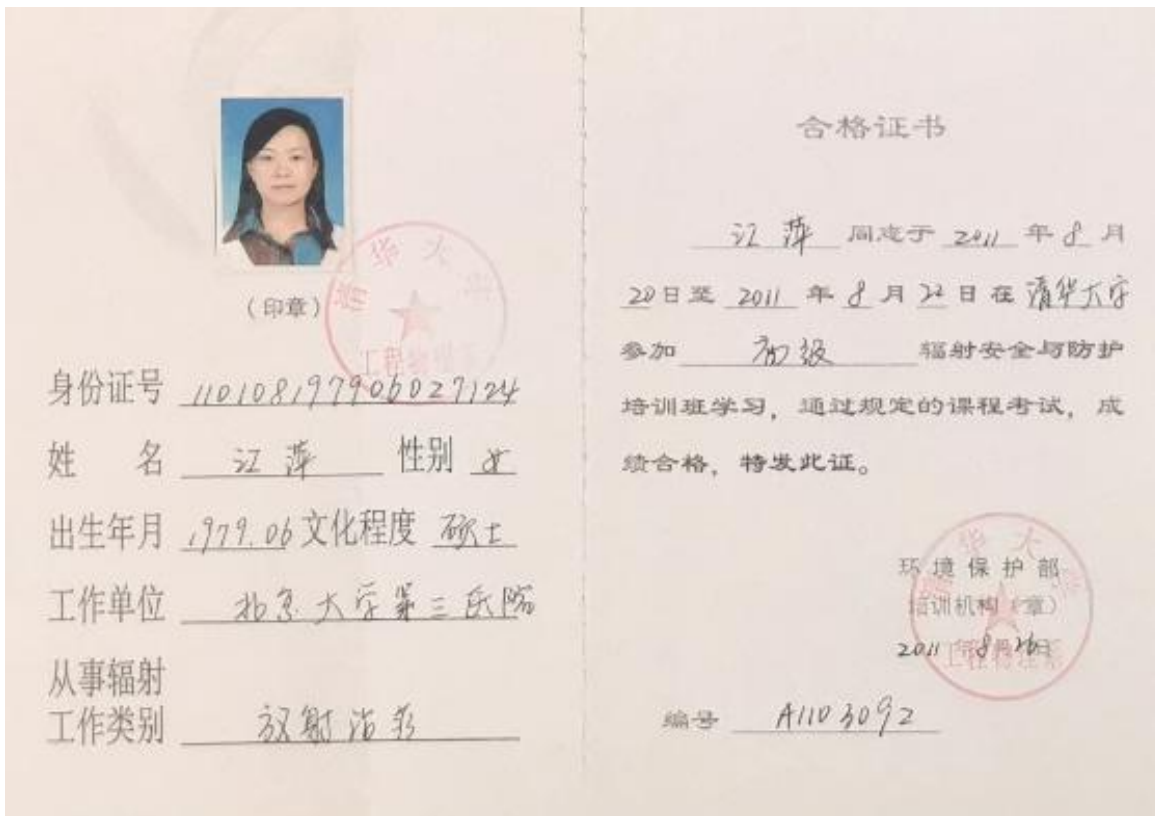 (印章)
清华大学
工程物理系
身份证号 110108197906027124
姓 名 江萍 性别 女
出生年月 1979.06 文化程度 硕士
工作单位 北京大学第三医院
从事辐射
工作类别 放射治疗
合格证书
江萍 同志于 2011 年 8 月
20 日至 2011 年 8 月 22 日在 清华大学
参加 初级 辐射安全与防护
培训班学习，通过规定的课程考试，成
绩合格，特发此证。
环境保护部
培训机构（章）
2011 年 8 月 26 日
清华大学
工程物理系
编号 A1103092